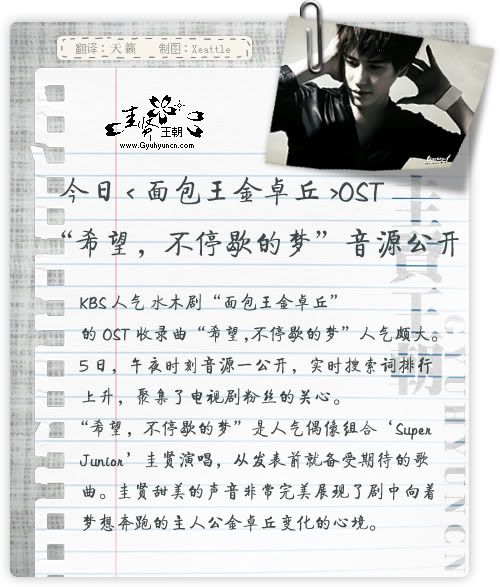 翻译：天籁 制图：Xeattle
圭贤王朝
www.Gyuhyuncn.com
今日<面包王金卓丘>OST
“希望，不停歇的梦”音源公开
KBS人气水木剧“面包王金卓丘”
的OST收录曲“希望,不停歇的梦”人气颇大。
5日，午夜时刻音源一公开，实时搜索词排行
上升，聚集了电视剧粉丝的关心。
“希望，不停歇的梦”是人气偶像组合‘Super
Junior’圭贤演唱，从发表前就备受期待的歌
曲。圭贤甜美的声音非常完美展现了剧中向着
梦想奔跑的主人公金卓丘变化的心境。
圭賢王朝
GYUHYUNCN